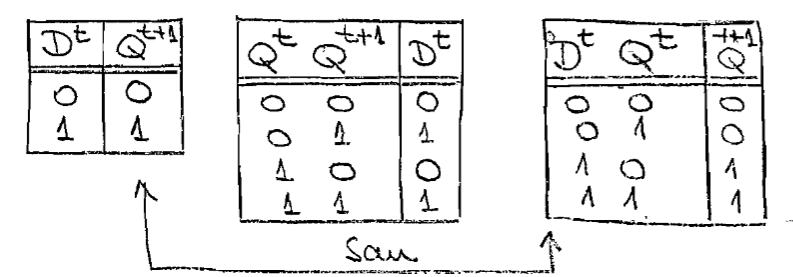 D^t Q^{t+1}
0 0
1 1
Q^t Q^{t+1} D^t
0 0 0
0 1 1
1 0 0
1 1 1
D^t Q^t Q^{t+1}
0 0 0
0 1 0
1 0 1
1 1 1
sau